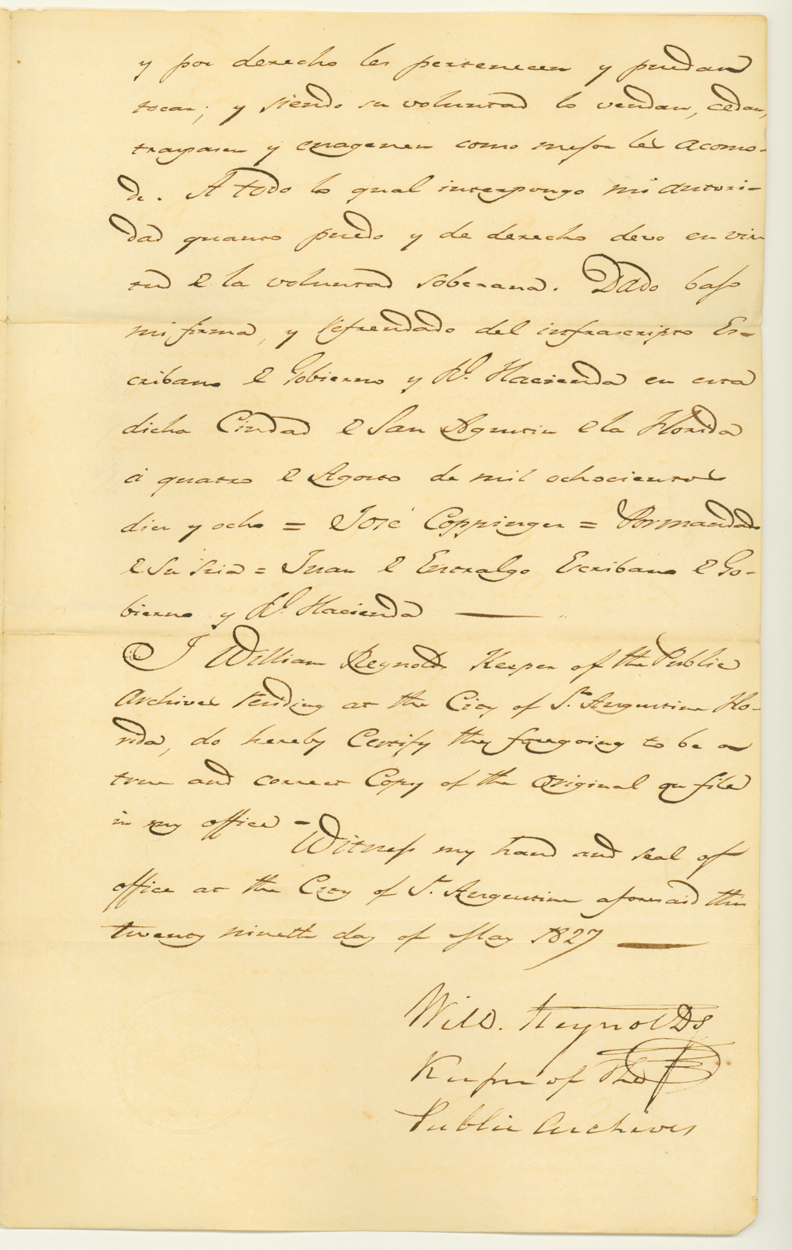 y por derecho les pertenecen y puedan
tocar; y siendo su voluntad lo vendan, cedan,
traspasen y enagenen como mejor les acomo-
de. A todo lo qual interpongo mi autori-
dad quanto puedo y de derecho devo en vir
tud de la voluntad soberana. Dado bajo
mi firma, y refrendado del infrascripto Es-
cribano de Gobierno y Rl. Hacienda en esta
dicha Ciudad de San Agustin de la Florida
à quatro de Agosto de mil ochocientos
diez y ocho = José Coppinger = Por mandado
de su Sria = Juan de Entralgo Escribano de Go-
bierno y Rl. Hacienda
I William Reynolds Keeper of the Public
Archives residing at the City of St. Augustine Flo-
rida, do hereby Certify the foregoing to be a
true and correct Copy of the original on file
in my office -
Witness my hand and seal of
office at the City of St. Augustine aforesaid this
twenty nineth day of May 1827
Will. Reynolds
Keeper of the
Public Archives